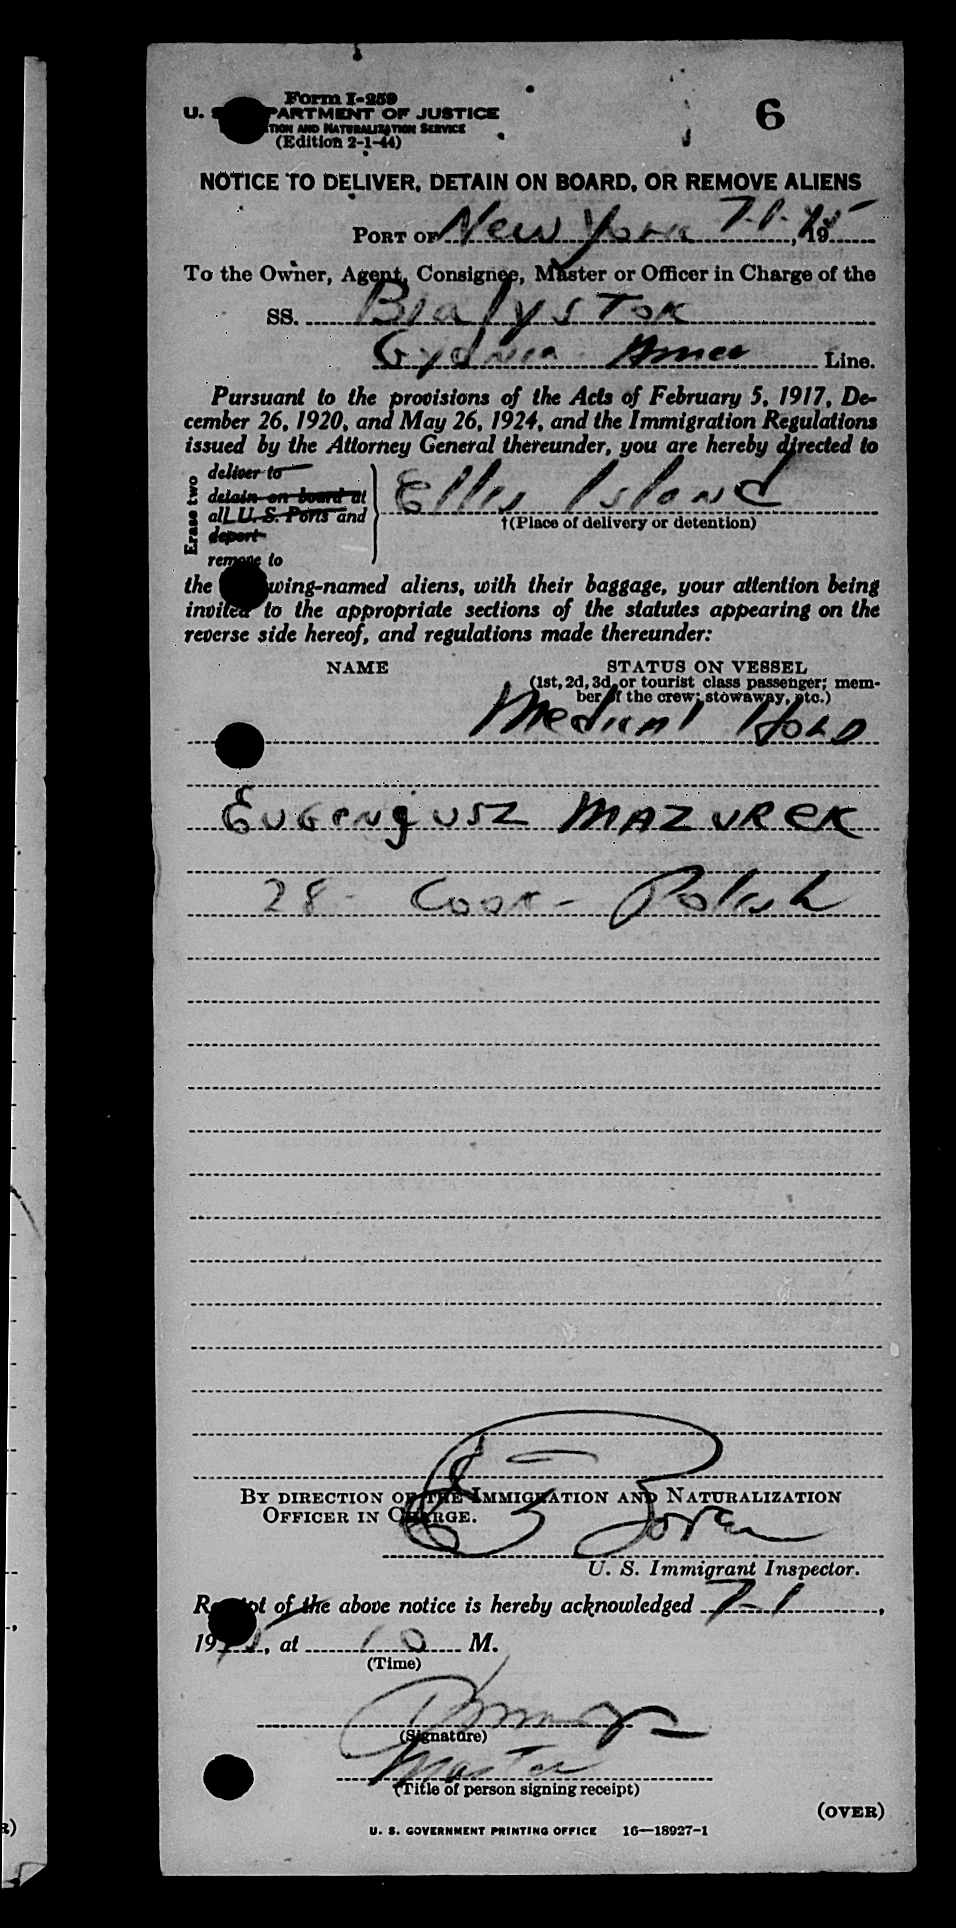 Form I-259
U. S. DEPARTMENT OF JUSTICE
AND NATURALIZATION SERVICE
(Edition 2-1-44)
6
NOTICE TO DELIVER, DETAIN ON BOARD, OR REMOVE ALIENS
PORT OF New York 7-1-45, 19
To the Owner, Agent, Consignee, Master or Officer in Charge of the
SS. Bialystok
Gydnia Amer Line.
Pursuant to the provisions of the Acts of February 5, 1917, De-
cember 26, 1920, and May 26, 1924, and the Immigration Regulations
issued by the Attorney General thereunder, you are hereby directed to
Erase two
deliver to
detain on board at
all U. S. Ports and
deport
remove to
Ellis Island
†(Place of delivery or detention)
the following-named aliens, with their baggage, your attention being
invited to the appropriate sections of the statutes appearing on the
reverse side hereof, and regulations made thereunder:
NAME STATUS ON VESSEL
(1st, 2d, 3d, or tourist class passenger; mem-
ber of the crew; stowaway, etc.)
Medical Hold
Eugenjusz MAZUREK
28 - Cook - Polish
BY DIRECTION OF THE IMMIGRATION AND NATURALIZATION
OFFICER IN CHARGE.
U. S. Immigrant Inspector.
Receipt of the above notice is hereby acknowledged 7-1,
19, at 10 M.
(Time)
(Signature)
Master
(Title of person signing receipt)
(OVER)
U. S. GOVERNMENT PRINTING OFFICE 16—18927-1